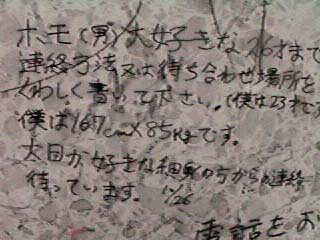 ホモ(男)大好きな26才まで
連絡方法又は待ち合わせ場所を
くわしく書いて下さい。(僕は23才です
僕は167cm×85kgです。
太目が好きな細身の方からの連絡
待っています。 11/26
電話をお